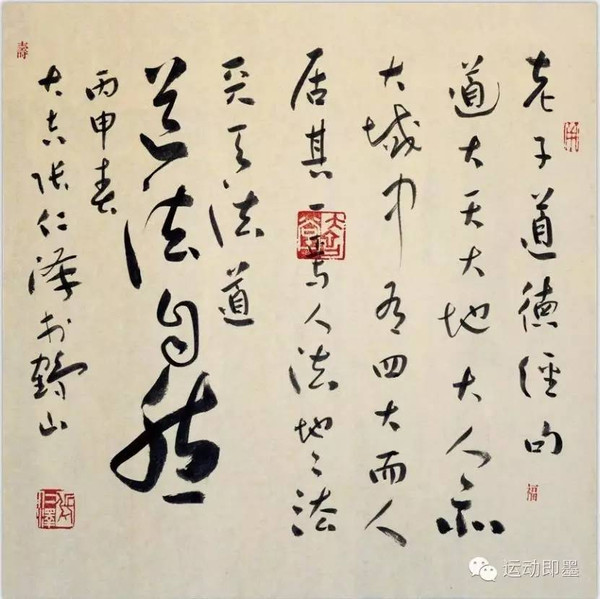 老子道德經句
道大天大地大人亦
大域中有四大而人
居其一焉人法地々法
天天法道
道法自然
丙申春
張仁澤於鶴山
壽
福
运动即墨